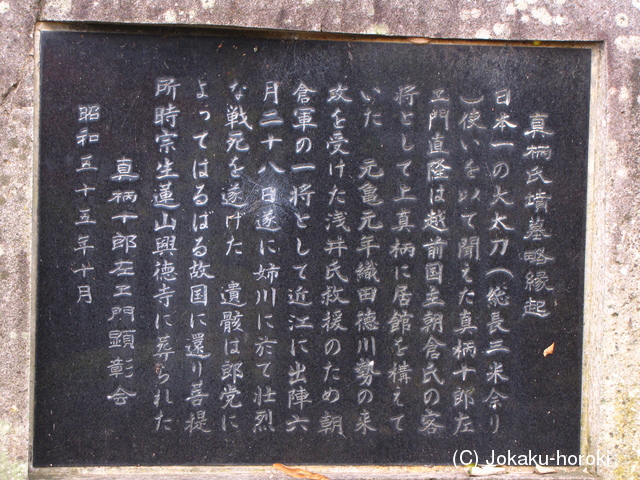 真柄氏墳墓略縁起
日本一の大太刀（総長三米余り
）使いを以て聞えた真柄十郎左
ヱ門直隆は越前国主朝倉氏の客
将として上真柄に居館を構えて
いた　元亀元年織田徳川勢の来
攻を受けた浅井氏救援のため朝
倉軍の一将として近江に出陣六
月二十八日遂に姉川に於て壮烈
な戦死を遂げた　遺骸は郎党に
よってはるばる故国に還り菩提
所時宗生蓮山興徳寺に葬られた
真柄十郎左ヱ門顕彰会
昭和五十五年十月
(C) Jokaku-horoki